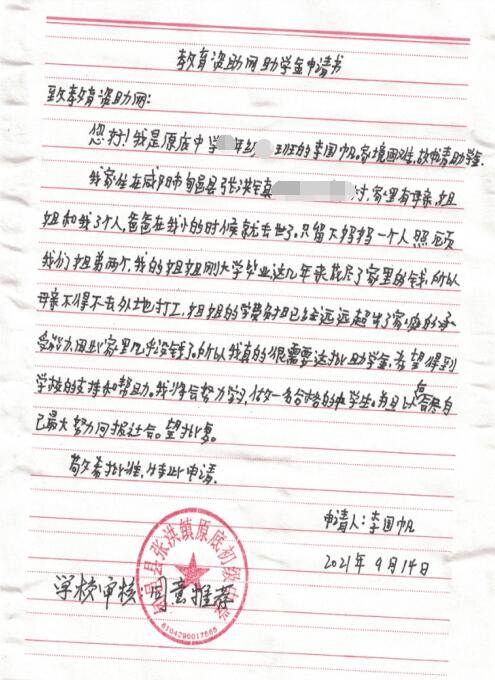 教育资助网助学金申请书
致教育资助网:
您好!我是原底中学 年级 班的李国帆,家境困难,故申请助学金.
我家住在咸阳市旬邑县张洪镇 村,家里有母亲,姐
姐和我3个人,爸爸在我小的时候就去世了。只留下妈妈一个人照顾
我们姐弟两个,我的姐姐刚大学毕业这几年来花尽了家里的钱,所以
母亲不得不去外地打工,姐姐的学费等已经远远超出了家庭的承
受能力,因此家里几乎没钱了。所以我真的很需要这批助学金,希望得到
学校的支持和帮助。我将会努力学习,做好一名合格的中学生。并且以后尽自
己最大努力回报社会。望批复。
敬希批准,特此申请.
申请人:李国帆
2021年9月14日
学校审核:同意推荐
旬邑县张洪镇原底初级中学
6104290017665